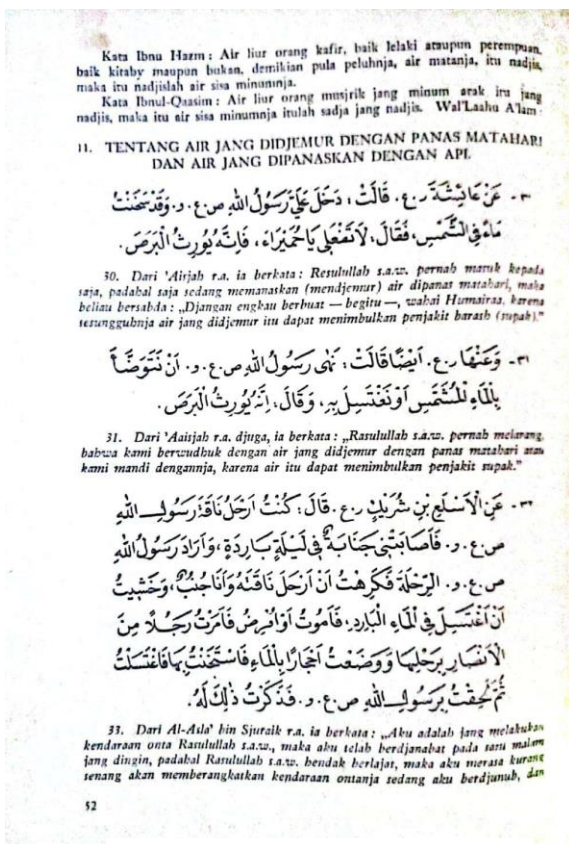 Kata Ibnu Hazm : Air liur orang kafir, baik lelaki ataupun perempuan,
baik kitaby maupun bukan, demikian pula peluhnja, air matanja, itu nadjis,
maka itu nadjislah air sisa minumnja.
Kata Ibnul-Qaasim : Air liur orang musjrik jang minum arak itu jang
nadjis, maka itu air sisa minumnja itulah sadja jang nadjis. Wal'Laahu A'lam
11. TENTANG AIR JANG DIDJEMUR DENGAN PANAS MATAHARI
DAN AIR JANG DIPANASKAN DENGAN API.
٣٠- عَنْ عَائِشَةَ ر.ع. قَالَتْ : دَخَلَ عَلَيَّ رَسُولُ اللهِ ص.ع.و. وَقَدْ سَخَنْتُ
مَاءً فِي الشَّمْسِ، فَقَالَ: لَا تَفْعَلِي يَا حُمَيْرَاءُ، فَإِنَّهُ يُورِثُ الْبَرَصَ.
30. Dari 'Aisjah r.a. ia berkata : Resulullah s.a.w. pernah masuk kepada
saja, padahal saja sedang memanaskan (mendjemur) air dipanas matahari, maka
beliau bersabda : „Djangan engkau berbuat — begitu —, wahai Humairaa, karena
sesungguhnja air jang didjemur itu dapat menimbulkan penjakit barash (supak)."
٣١- وَعَنْهَا ر.ع. اَيْضًا قَالَتْ : نَهَى رَسُولُ اللهِ ص.ع.و. اَنْ نَتَوَضَّأَ
بِالْمَاءِ الْمُشَمَّسِ اَوْ نَغْتَسِلَ بِهِ، وَقَالَ : اِنَّهُ يُورِثُ الْبَرَصَ.
31. Dari 'Aaisjah r.a. djuga, ia berkata : „Rasulullah s.a.w. pernah melarang,
bahwa kami berwudhuk dengan air jang didjemur dengan panas matahari atau
kami mandi dengannja, karena air itu dapat menimbulkan penjakit supak."
٣٢- عَنِ الْاَسْلَعِ بْنِ شُرَيْكٍ ر.ع. قَالَ : كُنْتُ اَرْحَلُ نَاقَةَ رَسُولِ اللهِ
ص.ع.و. فَاَصَابَتْنِي جَنَابَةٌ فِي لَيْلَةٍ بَارِدَةٍ، وَاَرَادَ رَسُولُ اللهِ
ص.ع.و. الرِّحْلَةَ فَكَرِهْتُ اَنْ اَرْحَلَ نَاقَتَهُ وَاَنَا جُنُبٌ، وَخَشِيتُ
اَنْ اَغْتَسِلَ فِي الْمَاءِ الْبَارِدِ، فَاَمُوتُ اَوْ اَمْرَضُ فَاَمَرْتُ رَجُلًا مِنَ
الْاَنْصَارِ بِرَحْلِهَا وَوَضَعْتُ اَحْجَارًا بِالْمَاءِ فَاسْتَحْمَنْتُ بِهَا فَاغْتَسَلْتُ
ثُمَّ لَحِقْتُ بِرَسُولِ اللهِ ص.ع.و. فَذَكَرْتُ ذٰلِكَ لَهُ.
33. Dari Al-Asla' bin Sjuraik r.a. ia berkata : „Aku adalah jang melakukan
kendaraan onta Rasulullah s.a.w., maka aku telah berdjanabat pada satu malam
jang dingin, padahal Rasulullah s.a.w. hendak berlajat, maka aku merasa kurang
senang akan memberangkatkan kendaraan ontanja sedang aku berdjunub, dan
52